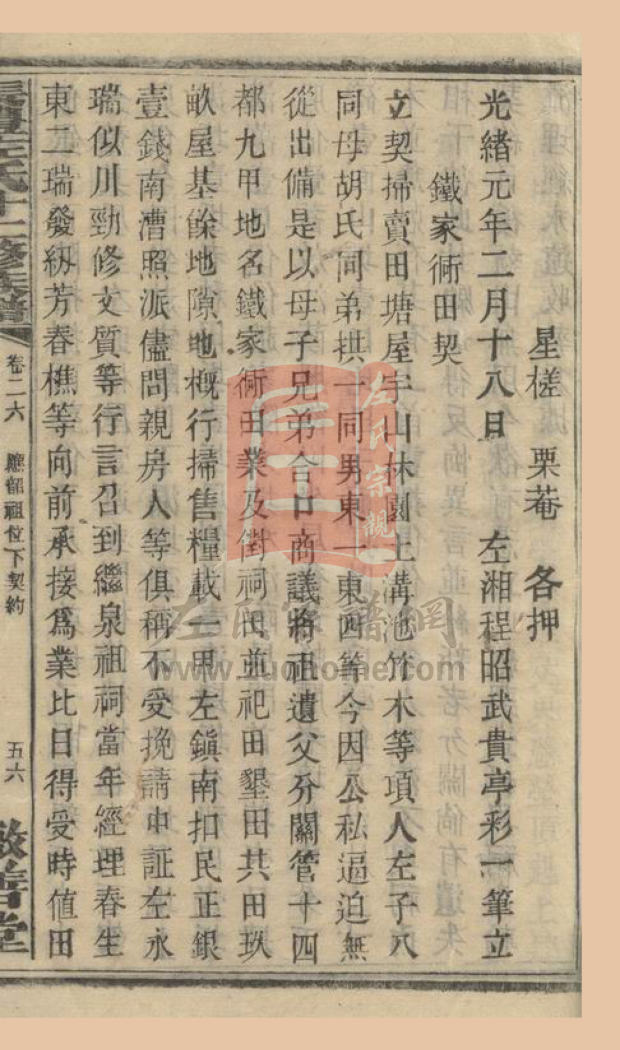 星槎 栗菴 各押
光緒元年二月十八日 左湘程昭武貴亭彩一筆立
鐵家衕田契
立契掃賣田塘屋宇山林園土溝池竹木等項人左子八
同母胡氏同弟拱一同男東一東四等今因公私逼迫無
從出備是以母子兄弟合口商議將祖遺父分關管十四
都九甲地名鐵家衕田業及衕祠田並祀田墾田共田玖
畝屋基餘地隙地槪行掃售糧載一界左鎮南扣民正銀
壹錢南漕照派儘問親房人等俱稱不受挽請中証左永
瑞似川勁修文質等行言召到繼泉祖祠當年經理春生
東二瑞發紉芳春樵等向前承接爲業比日得受時值田
左氏十二修族譜
卷二六 應韶祖位下契約 五六
善堂
左氏宗親
左氏宗譜網
www.zuohome.com